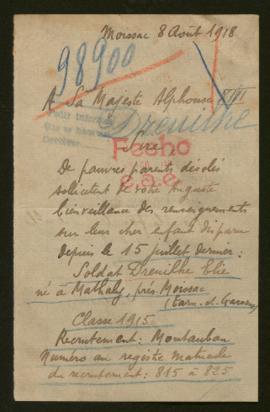 Moissac 8 Août 1918
98900
A Sa Majesté Alphonse XIII
Dreuilhe
Sire
Fecho
De pauvres parents désolés
sollicitent de votre Auguste
bienveillance des renseignements
sur leur cher enfant disparu
depuis le 15 juillet dernier:
Soldat Dreuilhe Elie
né à Mathaly, près Moissac
(Tarn-et-Garonne)
Classe 1915
Recrutement: Montauban
Numéro au registre matricule
du recrutement: 815 à 825